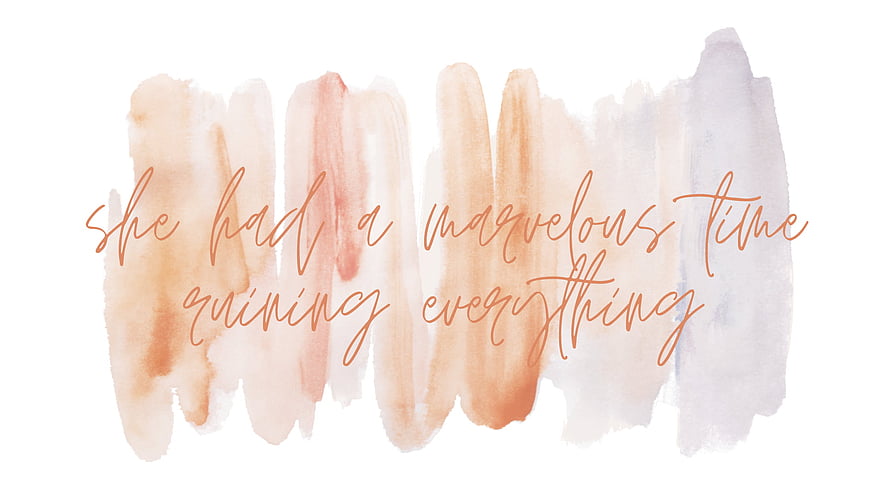 she had a marvelous time
ruining everything